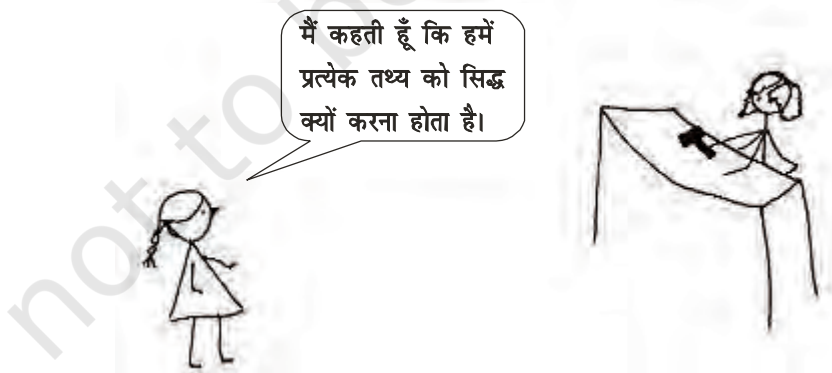 मैं कहती हूँ कि हमें
प्रत्येक तथ्य को सिद्ध
क्यों करना होता है।
not to b